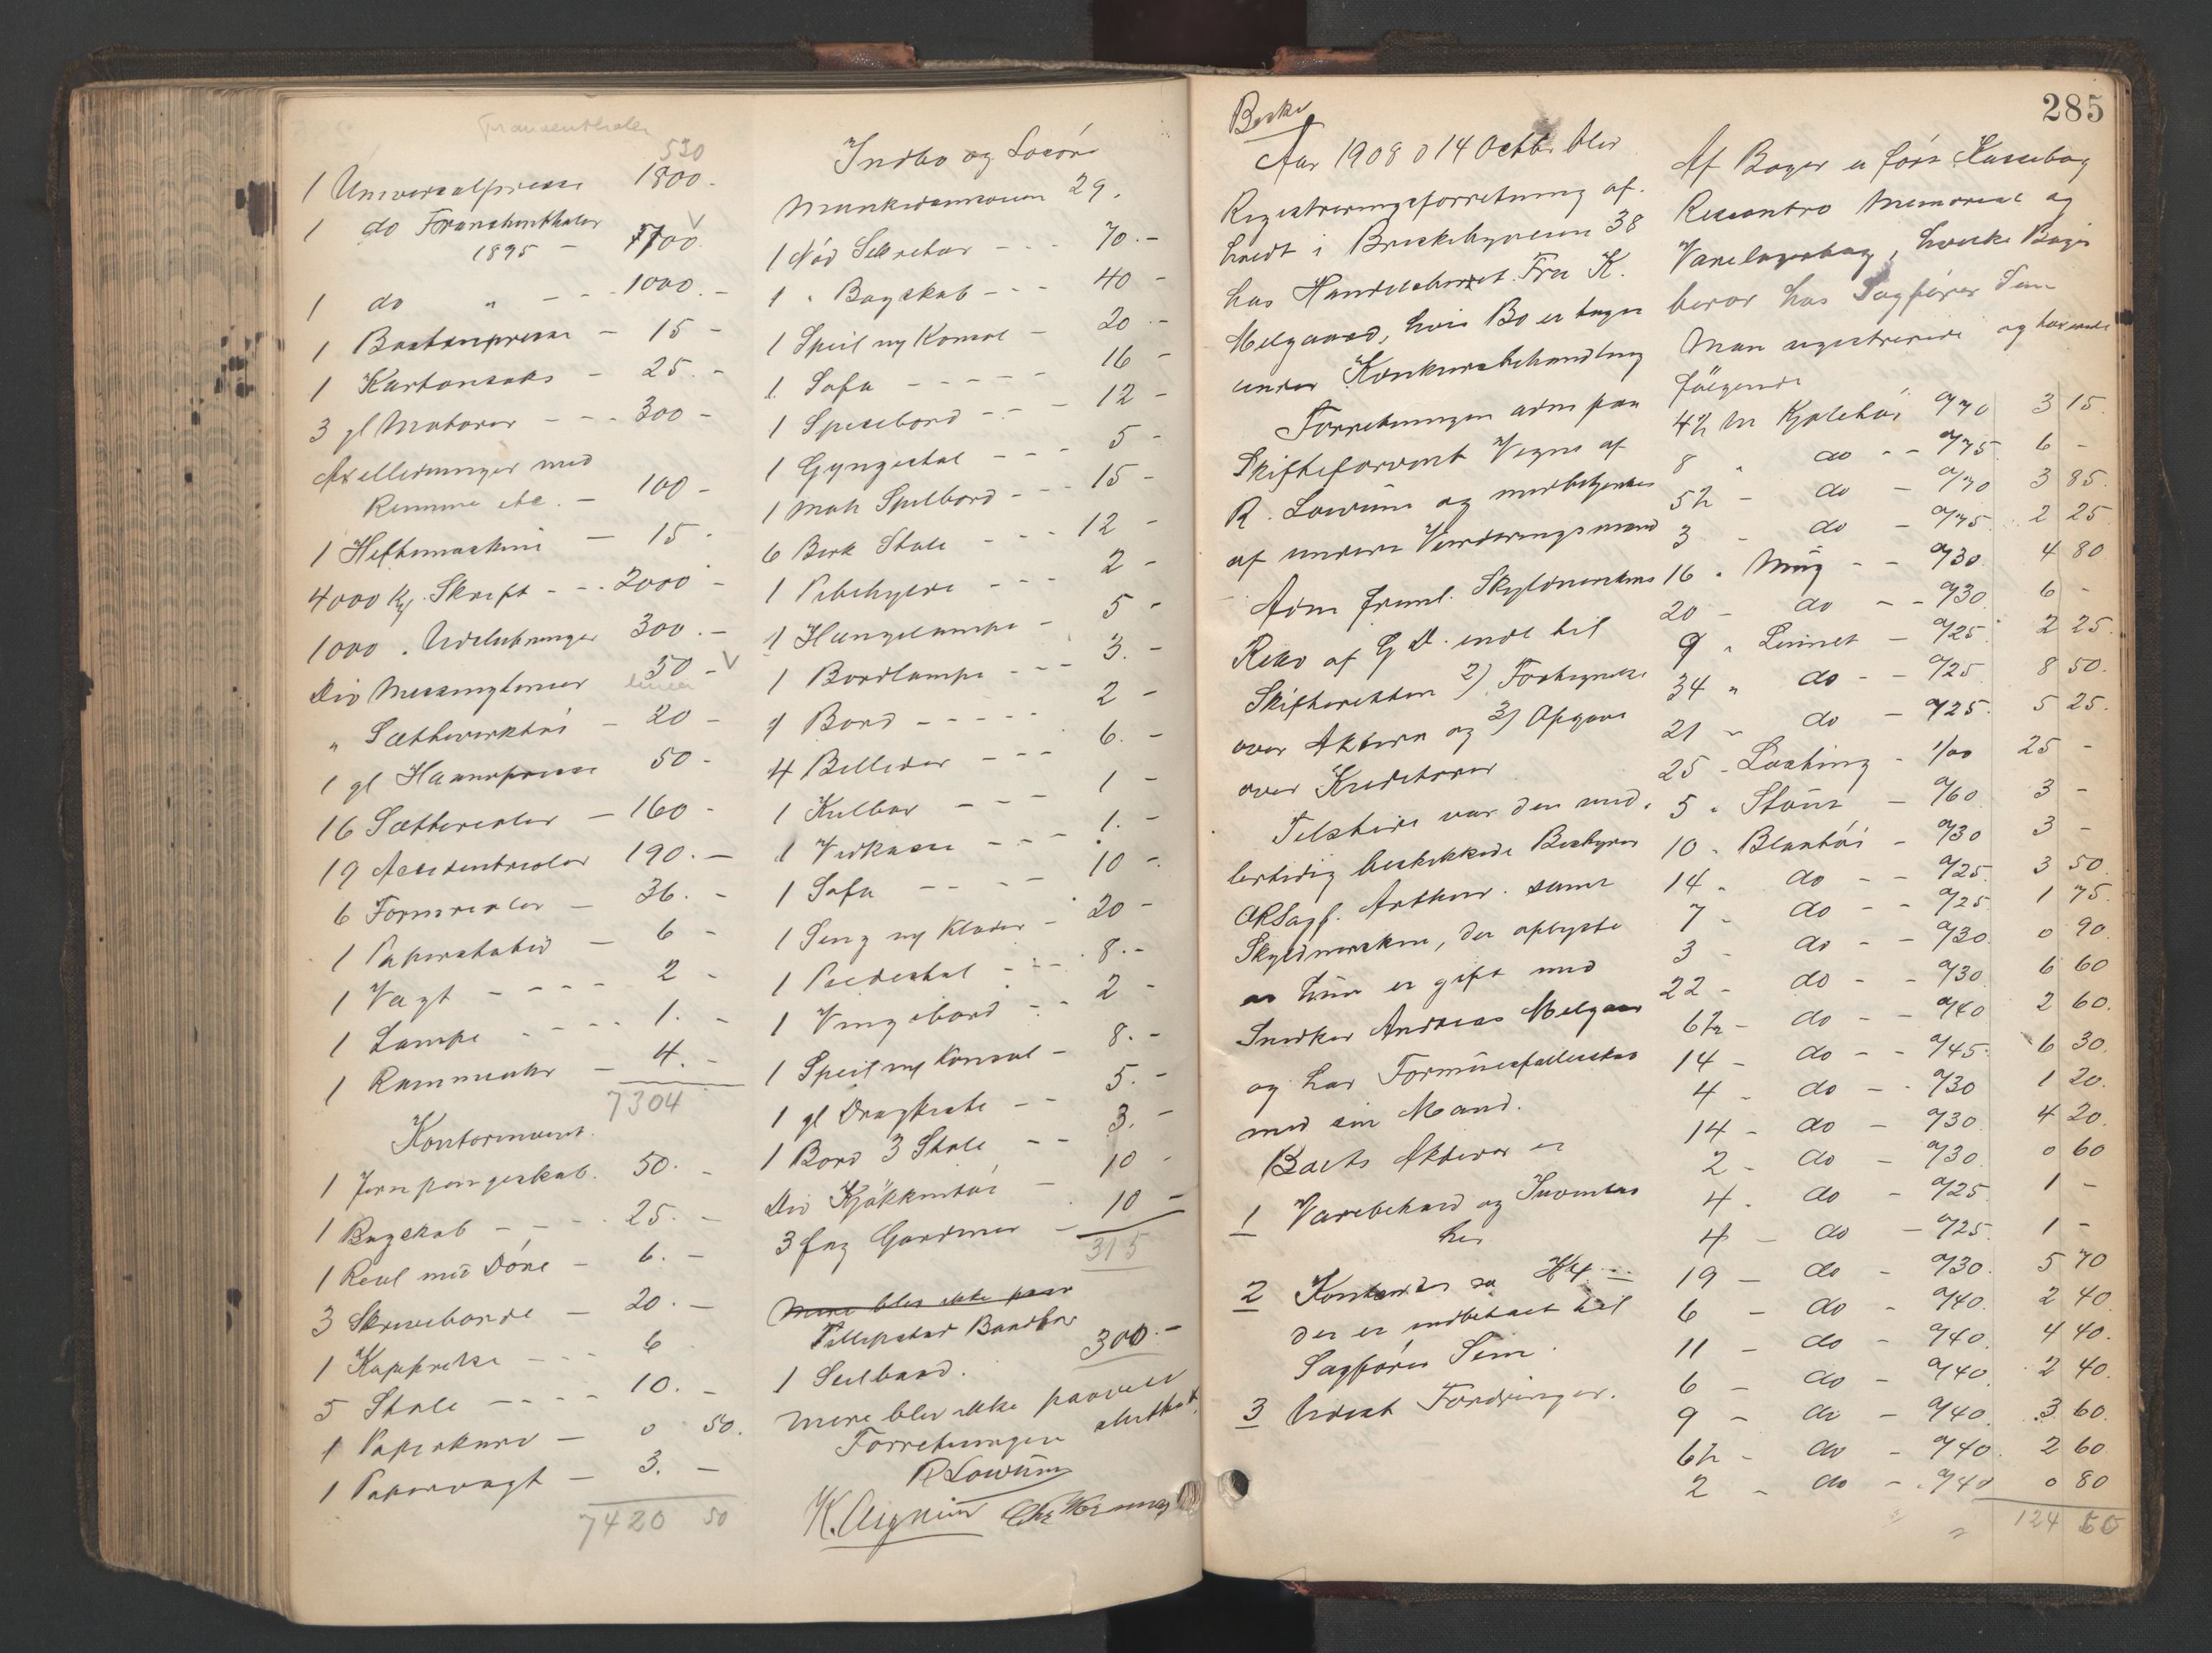 Frankenthaler
530
1 Universalpresse 1800.
1 do Frankenthaler
1895 - 1700
1 do " - - 1000. -
1 Bostonpresse - 15 -
1 Kartonsaks - 25. -
3 gl Motorer - - - 300 -
Axelledninger med
Remme etc. - 100 -
1 Heftemaskine - 15 -
4000 Kg. Skrift - - 2000 -
1000 . Udslutninger 300. -
Div Messinglinier 50 -
" Sætteverktøi - 20 -
1 gl Haandpresse 50 -
16 Sættereoler - 160 -
19 Accidentreoler 190. -
6 Formreoler - 36. -
1 Papirstativ - 6 -
1 Vægt - - - - 2 -
1 Lampe - - - - 1. -
1 Rammeuhr - 4. -
7304
Kontorinvent.
1 Jernpengeskab. 50. -
1 Bogskab - - - 25. -
1 Reol med Döre - 6. -
3 Skriveborde - 20. -
1 Kopipresse - - - 6
5 Stole - - - - 10. -
1 Papirkurv - 0 50.
1 Papirvægt - 3. -
7420 50
Indbo og Løsøre
Munkedamsveien 29.
1 Nød Sekretær - - - 70. -
1 " Bogskab - - - 40 -
1 Speil og Konsol - 20 -
1 Sofa - - - - - 16 -
1 Spisebord - - - 12 -
1 Gyngestol - - - 5 -
1 Mah Spilbord - - - 15 -
6 Birk Stole - - - 12 -
1 Pibehylde - - - 2 -
1 Hængelampe - 5 -
1 Bordlampe - - - 3. -
1 Bord - - - - - 2 -
4 Billeder - - - 6. -
1 Kulbox - - - 1 -
1 Vedkasse - - - 1. -
1 Sofa - - - - 10 -
1 Seng og Klæder - 20 -
1 Piedestal - - - 8. -
1 Vingebord - - 2 -
1 Speil og Konsol - 8. -
1 gl Dragkiste - - 5. -
1 Bord 3 Stole - - 3. -
Div Kjøkkentøi - 10 -
3 fag Gardiner - 10 -
315
Mere blev ikke paav
Baadhus
1 Seilbaad. 300. -
Mere blev ikke paavist
Forretningen sluttet.
R Lowum
285
Aar 1908 d 14 Octbr blev
Registreringsforretning af-
holdt i Briskebyveien 38
hos Handelsberet. Fru K.
Melgaard, hvis Bo er tagen
under Konkursbehandling
Forretningen adm paa
Skifteforvalt Vegne af
R. Lowum og medbetjentes
af undern Vurderingsmænd
Adm freml. Skyldnerskens
Rekv af G D. indl til
Skifteretten 2) Fortegnelse
over Aktiva og 3) Opgave
over Kreditorer
Tilstede var den mid.
lertidig beskikkede Bestyrer
ORSagf. Arthur. samt
Skyldnersken, der oplyste
at hun er gift med
Snedker Andreas Melgaard
og har Formuesfællesskab
med sin Mand.
Boets Aktiver er
1 Varebehold og Inventar
her
2 Kontanter
der er indbetalt til
Sagfører Sem.
3 Udest Fordringer.
Af Bøger er ført Kassebog
Rescontro Memorial og
Varelagerbog, hvilke Bøger
beror hos Sagfører Sem
Man registrerede og
følgende
4½ m Kjoletøi a/70 3 15.
8 " do - - a/75 6 -
5½ - do - a/70 3 85.
3 - do - a/75 2 25
16 " Moiré - - a/30 4 80
20 - do - - a/30 6 -
9 " Linnet - a/25 2 25
34 " do - - a/25 8 50.
21 - do - a/25 5 25.
25 - Lasting - 1/00 25 -
5 " Stout - a/60 3 -
10 " Blaatøi - a/30 3 -
14 " do - - a/25 3 50.
7 - do - - a/25 1 75.
3 - do - - a/30 0 90.
22 - do - - a/30 6 60
6½ - do - - a/40 2 60.
14 - do - - a/45 6 30.
4 - do - - a/30 1 20.
14 - do - a/30 4 20.
2 - do - a/30 0 60
4 - do - a/25 1 -
4 - do - a/25 1 -
19 - do - a/30 5 70
6 - do - a/40 2 40.
11 - do - a/40 4 40.
6 - do - a/40 2 40.
9 - do - a/40 3 60.
6½ - do - a/40 2 60.
2 - do - a/40 0 80
124 60